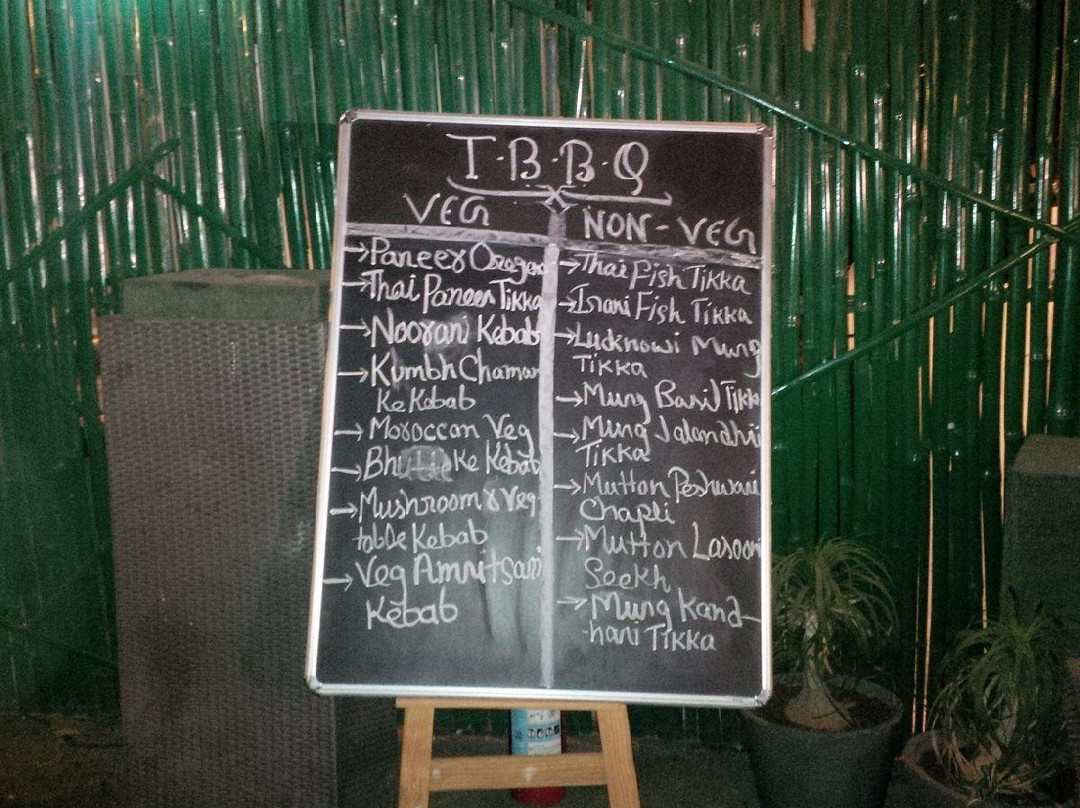 I.B.B.Q
VEG
→Paneer Oregano
→Thai Paneer Tikka
→Noorani Kebab
→Kumbh Chaman
Ke Kebab
→Moroccan Veg
→Bhutte Ke Kebab
→Mushroom & Veg-
table Kebab
→Veg Amritsari
Kebab
NON-VEG
→Thai Fish Tikka
→Irani Fish Tikka
→Lucknowi Murg
Tikka
→Murg Basil Tikka
→Murg Jalandhri
Tikka
→Mutton Peshwari
Chapli
→Mutton Lasooni
Seekh
→Murg Kand-
hari Tikka